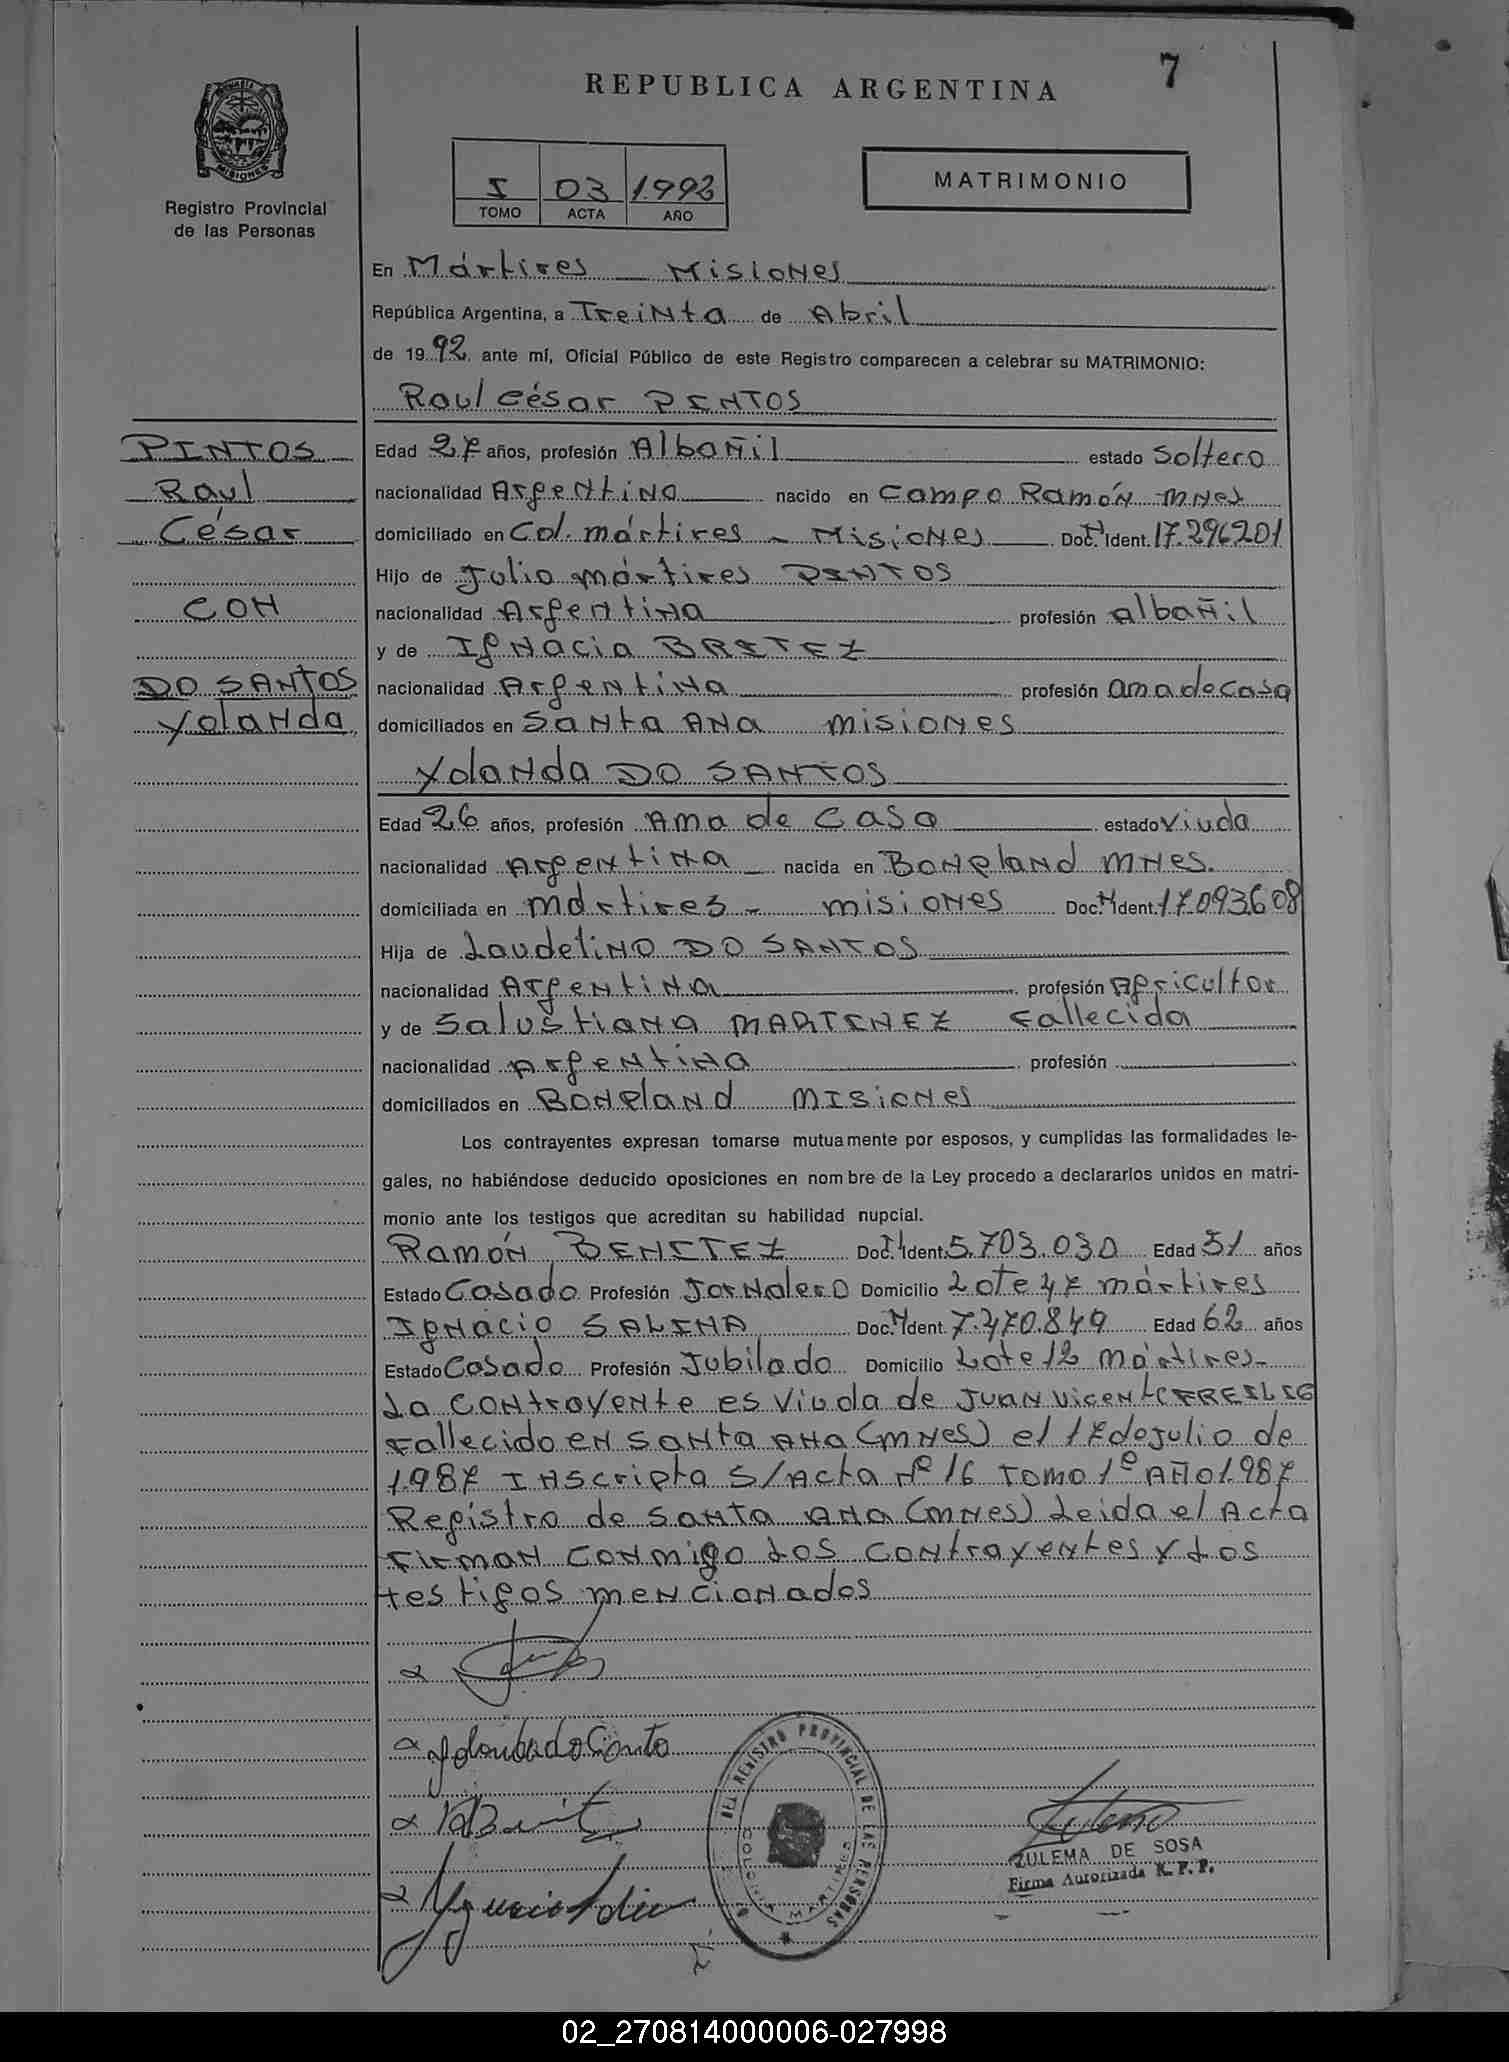 7
REPUBLICA ARGENTINA
MISIONES
Registro Provincial
de las Personas
I 03 1.992
TOMO ACTA AÑO
MATRIMONIO
En Mártires Misiones
República Argentina, a Treinta de Abril
de 19 92 ante mí, Oficial Público de este Registro comparecen a celebrar su MATRIMONIO:
Raul César PINTOS
PINTOS
Raul
César
CON
DO SANTOS
Yolanda
Edad 27 años, profesión Albañil estado Soltero
nacionalidad Argentina nacido en Campo Ramón MNes
domiciliado en Col. mártires - Misiones Doc. N Ident. 17.296201
Hijo de Julio mártires PINTOS
nacionalidad Argentina profesión Albañil
y de Ignacia BRITEZ
nacionalidad Argentina profesión ama de casa
domiciliados en Santa ANA misiones
Yolanda DO SANTOS
Edad 26 años, profesión Ama de casa estado Viuda
nacionalidad Argentina nacida en Bompland MNes.
domiciliada en mártires - misiones Doc. N Ident. 17.093.608
Hija de Laudelino DO SANTOS
nacionalidad Argentina profesión Agricultor
y de Salustiana MARTINEZ Fallecida
nacionalidad Argentina profesión
domiciliados en Bompland Misiones
Los contrayentes expresan tomarse mutuamente por esposos, y cumplidas las formalidades le-
gales, no habiéndose deducido oposiciones en nombre de la Ley procedo a declararlos unidos en matri-
monio ante los testigos que acreditan su habilidad nupcial.
Ramón BENITEZ Doc. N Ident. 5.703.030 Edad 51 años
Estado Casado Profesión Jornalero Domicilio Lote 47 mártires
Ignacio SALINA Doc. N Ident. 7.470.849 Edad 62 años
Estado Casado Profesión Jubilado Domicilio Lote 12 mártires-
La contrayente es Viuda de Juan Vicente
Fallecido en Santa ANA (MNes) el 17 de Julio de
1.987 Inscripta S/Acta Nº 16 Tomo 1º Año 1.987
Registro de Santa ANA (MNes) Leida el Acta
Firman conmigo Los contrayentes y Los
testigos mencionados
DEL REGISTRO PROVINCIAL DE LAS PERSONAS
COLONIA MARTIRES
ZULEMA DE SOSA
Firma Autorizada R. P. P.
02_270814000006-027998